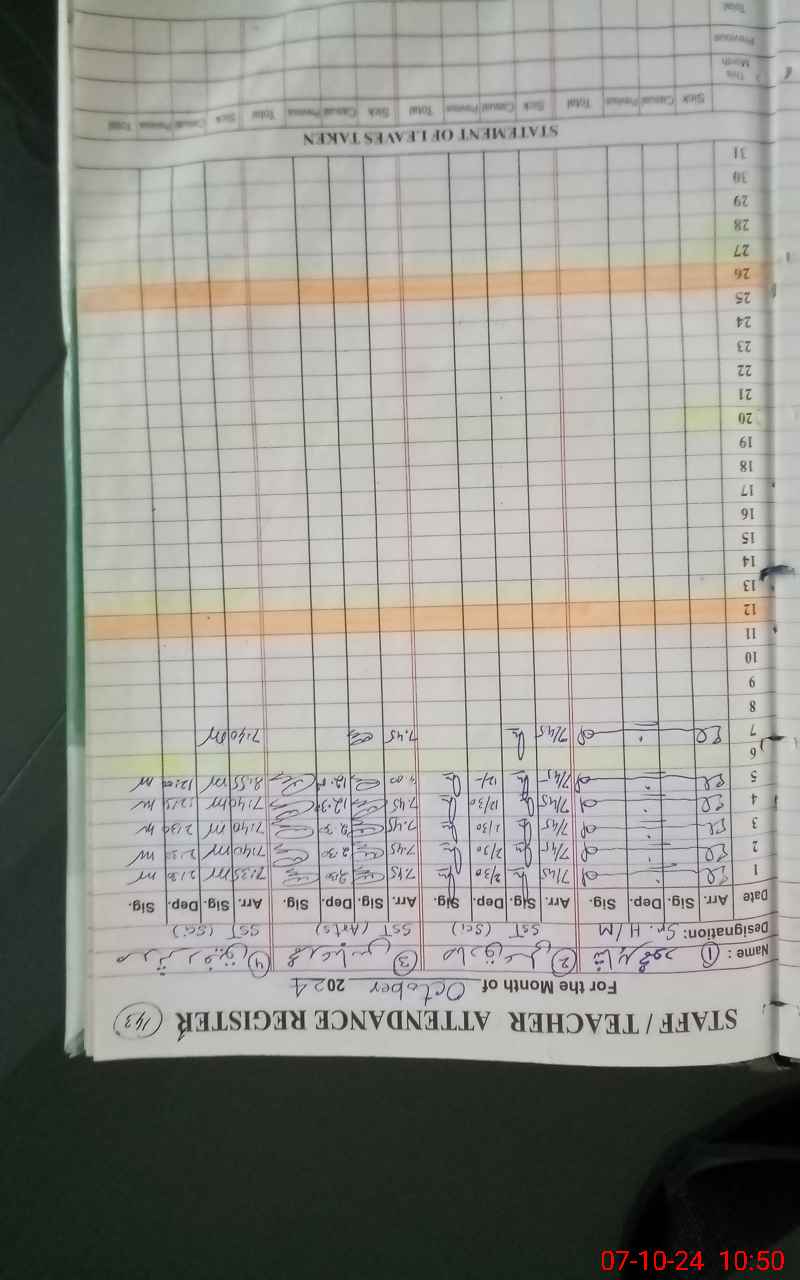 STAFF / TEACHER ATTENDANCE REGISTER 143
For the Month of October 2024
Name : 1 2 صادق علی 3 4
Designation: Sr. H/M SST (Sci) SST (Arts) SST (Sci)
Date Arr. Sig. Dep. Sig. Arr. Sig. Dep. Sig. Arr. Sig. Dep. Sig. Arr. Sig. Dep. Sig.
1 7/45 2/30 7.45 2.30 7:35 2:30
2 7/45 2/30 7.45 2.30 7:40 2:30
3 7/45 2/30 7.45 2.30 7:40 2:30
4 7/45 12/30 7.45 12.30 7:40 12:15
5 7/45 12/- 8:55 12:00
6
7 7/45 7.45 7:40
8
9
10
11
12
13
14
15
16
17
18
19
20
21
22
23
24
25
26
27
28
29
30
31
STATEMENT OF LEAVES TAKEN
Sick Casual Previous Total Sick Casual Previous Total Sick Casual Previous Total Sick Casual Previous Total
This Month
Previous
Total
07-10-24 10:50